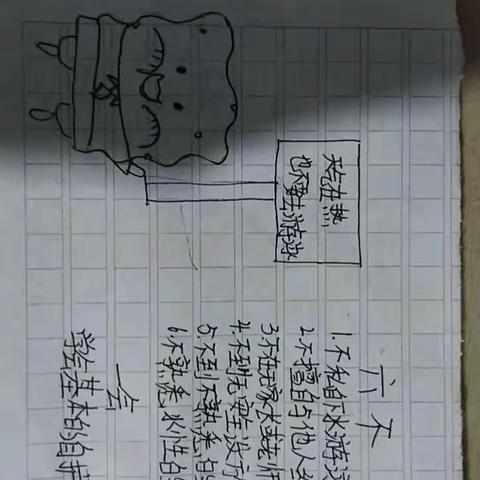 天气在热
也不要去游泳
六不
1.不私自下水游泳
2.不擅自与他人
3.不在无家长或老师
4.不到无安全设施
5.不到不熟悉的
6.不熟悉水性的
一会
学会基本的自